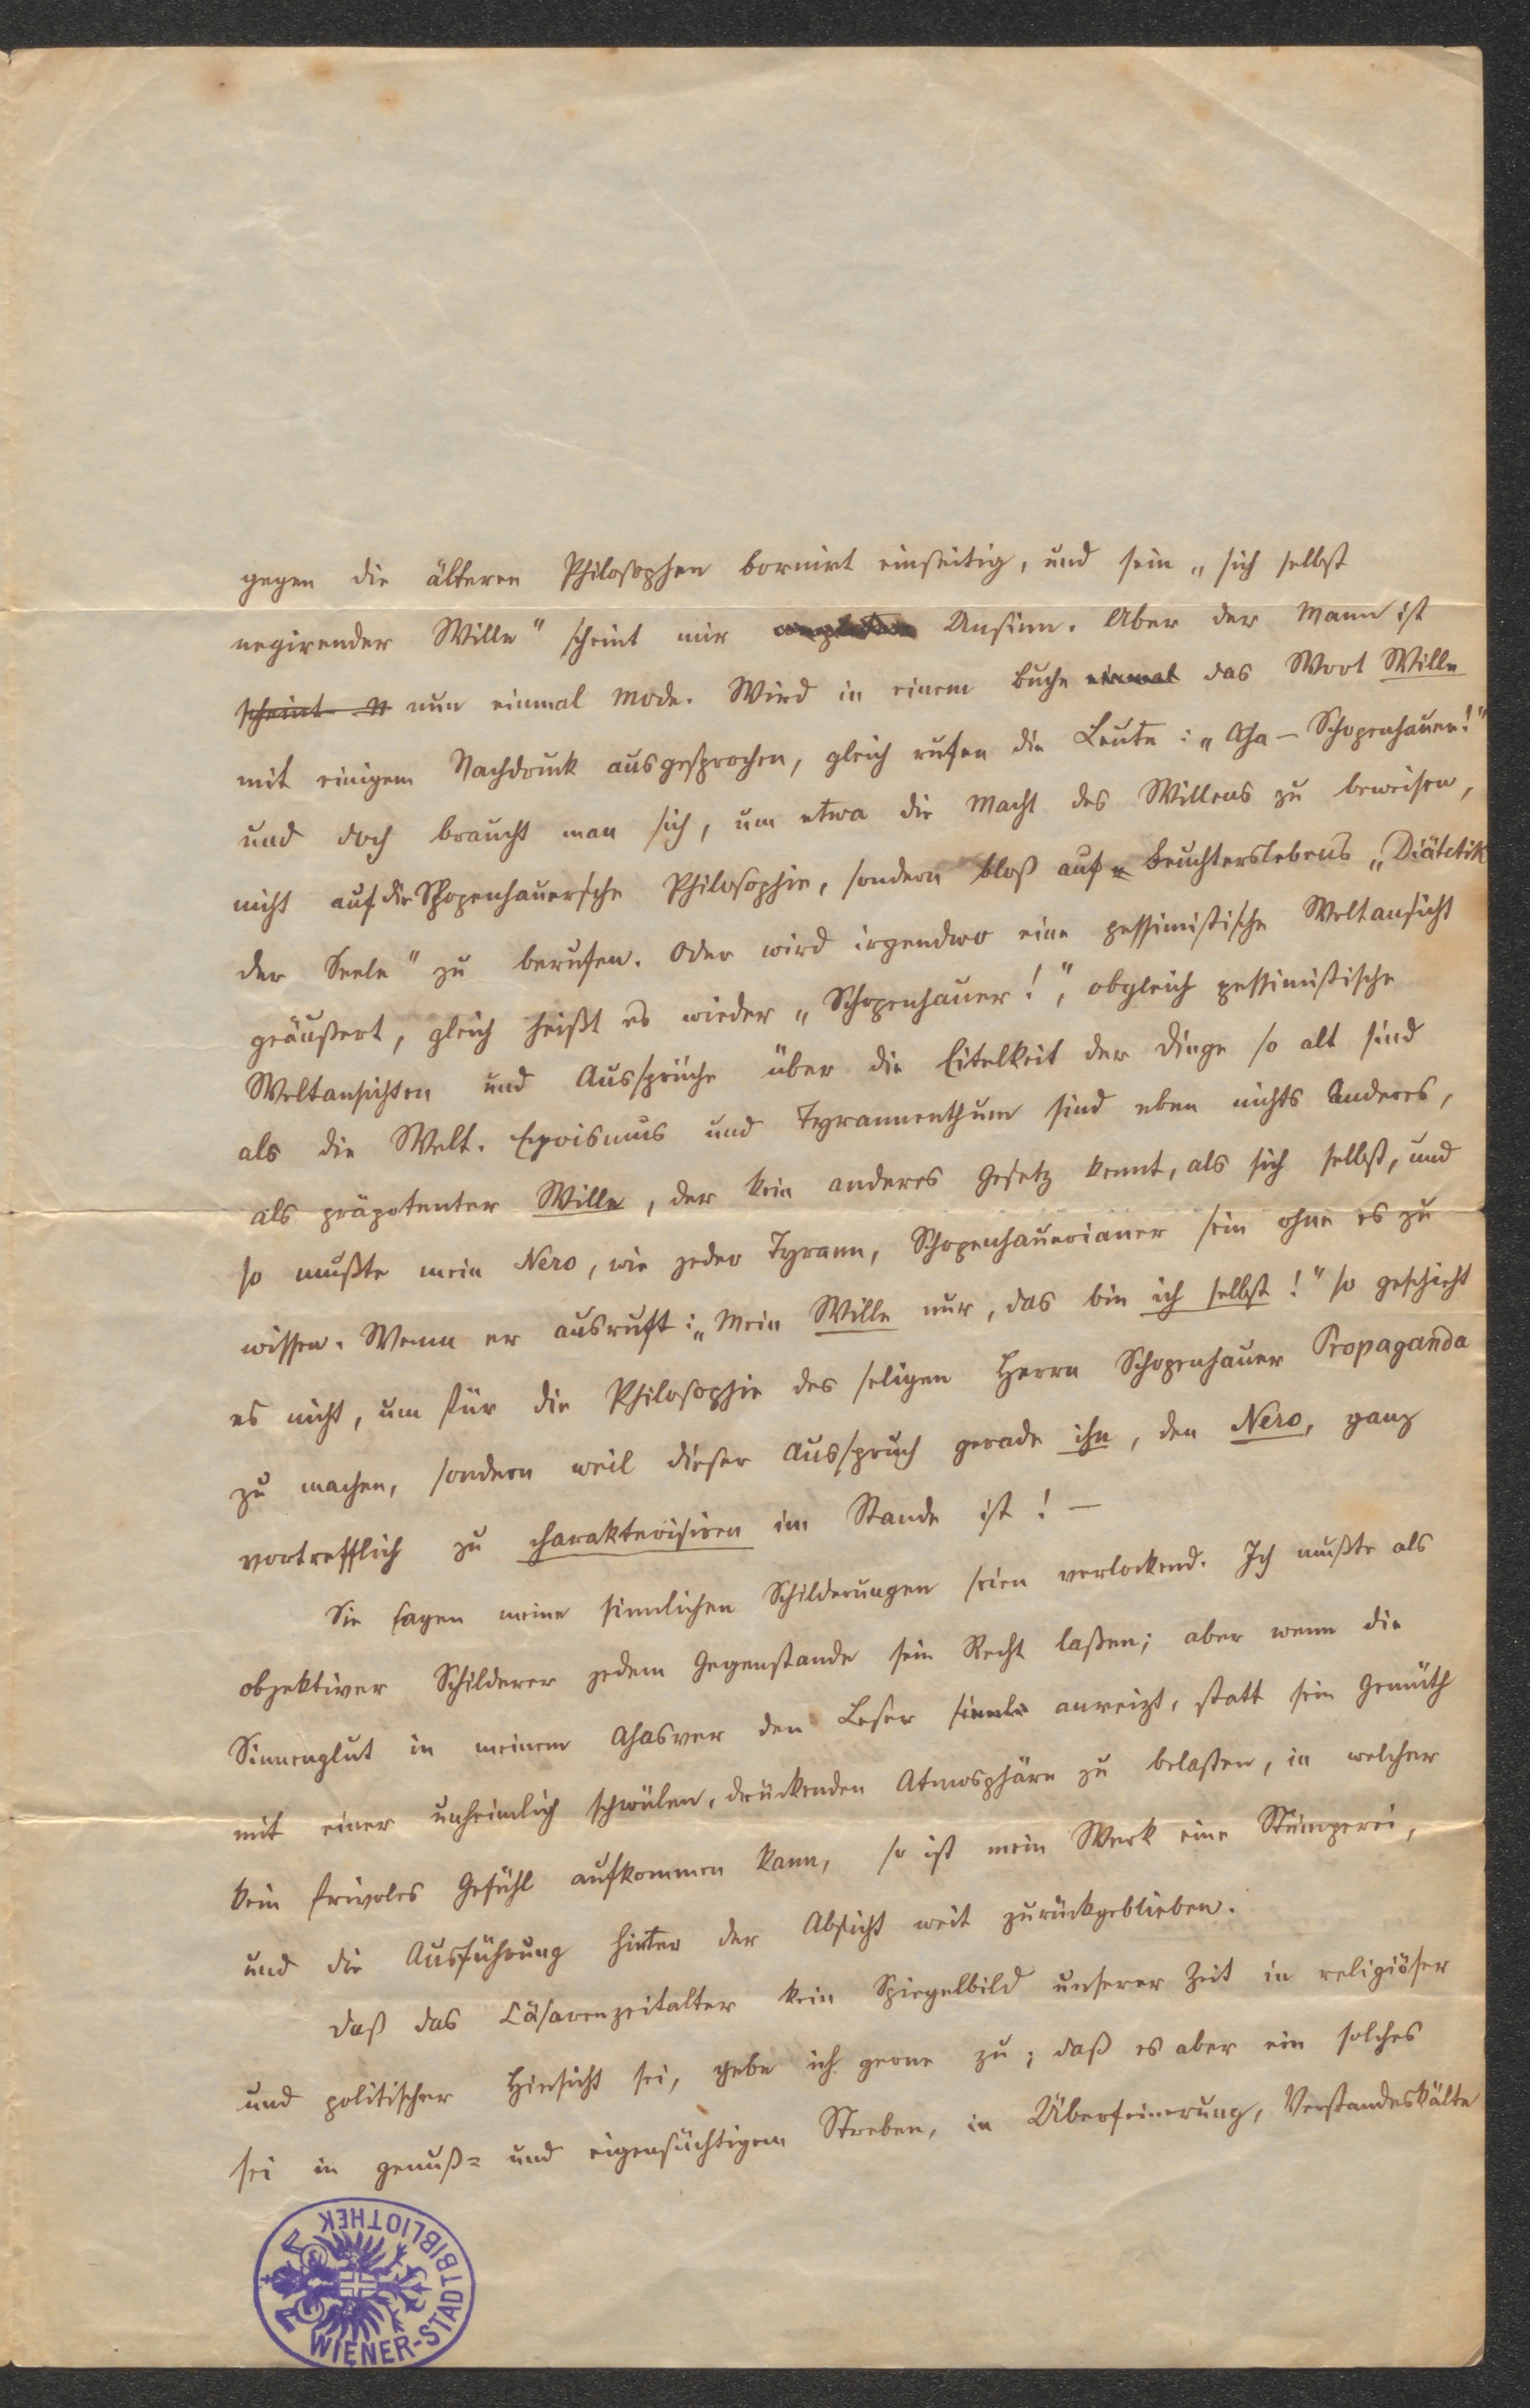 gegen die älteren Philosophen bornirt einseitig, und sein „sich selbst
negirender Wille" scheint mir completter Unsinn. Aber der Mann ist
scheint n nun einmal Mode. Wird in einem Buche einmal das Wort Wille
mit einigem Nachdruck ausgesprochen, gleich rufen die Leute: „Aha – Schopenhauer!"
und doch braucht man sich, um etwa die Macht des Willens zu beweisen,
nicht auf die Schopenhauersche Philosophie, sondern bloß auf Feuchterslebens „Diätetik
der Seele" zu berufen. Oder wird irgendwo eine pessimistische Weltansicht
geäußert, gleich heißt es wieder „Schopenhauer!", obgleich pessimistische
Weltansichten und Aussprüche über die Eitelkeit der Dinge so alt sind
als die Welt. Egoismus und Tyrannenthum sind eben nichts Anderes,
als präpotenter Wille, der kein anderes Gesetz kennt, als sich selbst, und
so mußte mein Nero, wie jeder Tyrann, Schopenhauerianer sein ohne es zu
wissen. Wenn er ausruft: „Mein Wille nur, das bin ich selbst!" so geschieht
es nicht, um für die Philosophie des seligen Herrn Schopenhauer Propaganda
zu machen, sondern weil dieser Ausspruch gerade ihn, den Nero, ganz
vortrefflich zu charakterisiren im Stande ist! –
Sie sagen meine sinnlichen Schilderungen seien verlockend. Ich mußte als
objektiver Schilderer jedem Gegenstande sein Recht laßen; aber wenn die
Sinnenglut in meinem Ahasver den Leser sinnli anreizt, statt sein Gemüth
mit einer unheimlich schwülen, drückenden Atmosphäre zu belasten, in welcher
kein frivoles Gefühl aufkommen kann, so ist mein Werk eine Stümperei,
und die Ausführung hinter der Absicht weit zurückgeblieben.
Daß das Cäsarenzeitalter kein Spiegelbild unserer Zeit in religiöser
und politischer Hinsicht sei, gebe ich gerne zu; daß es aber ein solches
sei in genuß= und eigensüchtigem Streben, in Überfeinerung, Verstandeskälte
WIENER-STADTBIBLIOTHEK